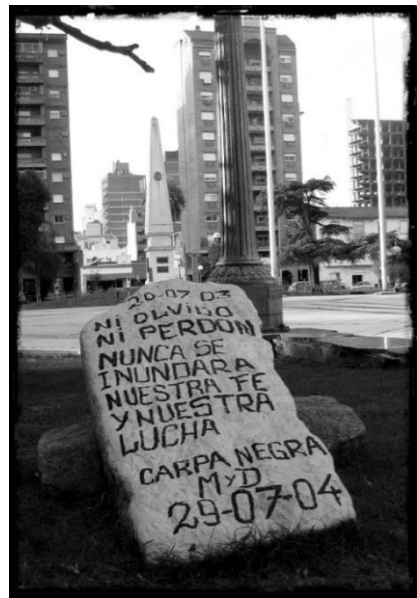 29-07-03
NI OLVIDO
NI PERDON
NUNCA SE
INUNDARA
NUESTRA FE
Y NUESTRA
LUCHA
CARPA NEGRA
M Y D
29-07-04